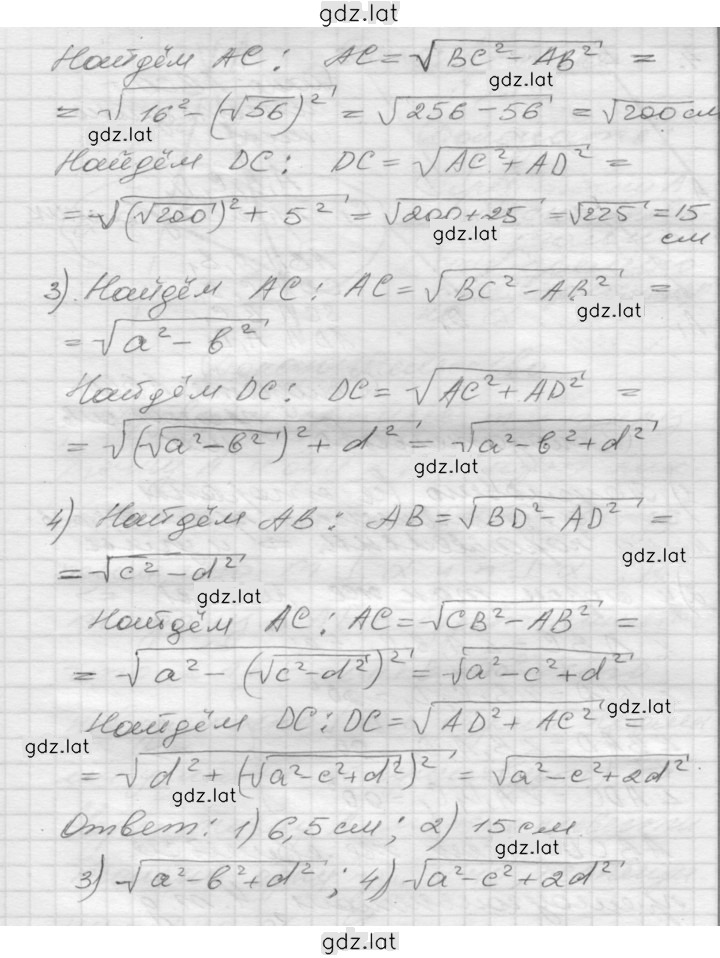 gdz.lat
Найдём AC: AC = √(BC² − AB²) =
gdz.lat
= √(16² − (√56)²) = √(256 − 56) = √200 см
gdz.lat
Найдём DC: DC = √(AC² + AD²) =
= √((√200)² + 5²) = √(200 + 25) = √225 = 15
gdz.lat
см
3) Найдём AC: AC = √(BC² − AB²) =
gdz.lat
= √(a² − b²)
Найдём DC: DC = √(AC² + AD²) =
= √((√(a² − b²))² + d²) = √(a² − b² + d²)
gdz.lat
4) Найдём AB: AB = √(BD² − AD²) =
gdz.lat
= √(c² − d²)
gdz.lat
Найдём AC: AC = √(CB² − AB²) =
= √(a² − (√(c² − d²))²) = √(a² − c² + d²)
gdz.lat
Найдём DC: DC = √(AD² + AC²) =
gdz.lat
= √(d² + (√(a² − c² + d²))²) = √(a² − c² + 2d²)
gdz.lat
Ответ: 1) 6,5 см; 2) 15 см
gdz.lat
3) √(a² − b² + d²); 4) √(a² − c² + 2d²)
gdz.lat